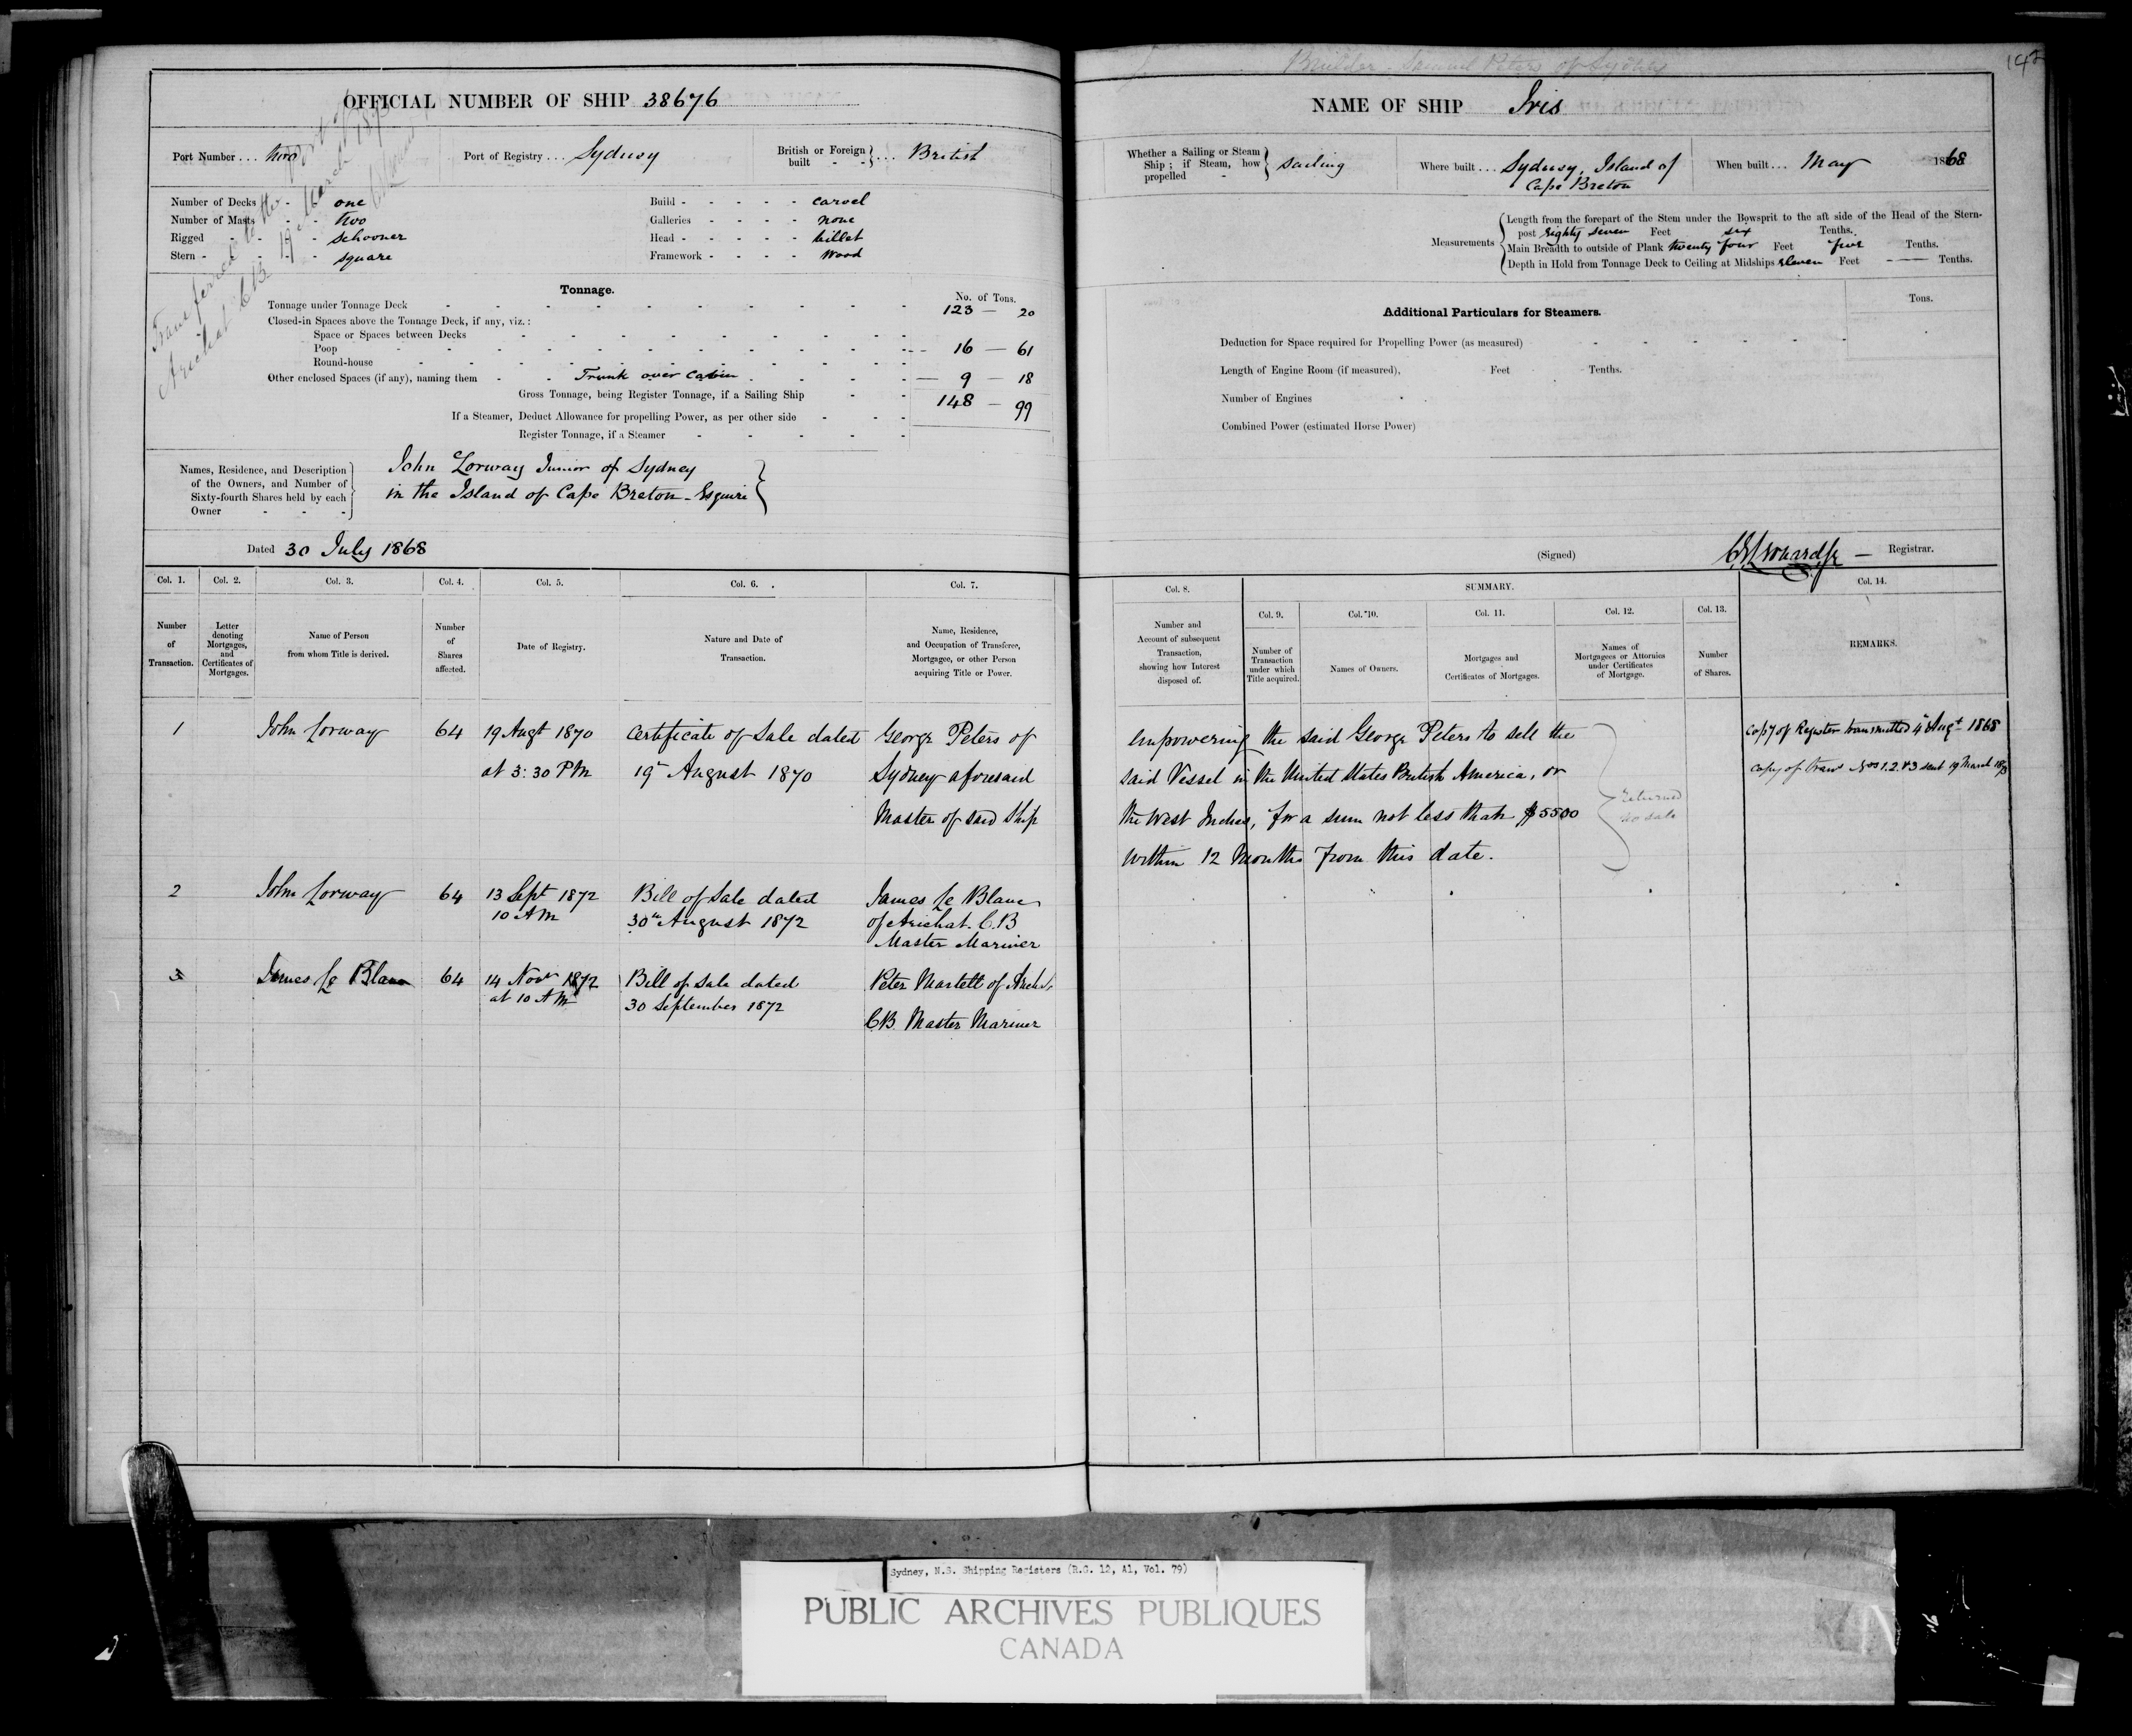 OFFICIAL NUMBER OF SHIP 38676
Port Number... two
Port of Registry... Sydney
British or Foreign built - - } ... British
Transferred to the Port of
Arichat C.B. 19th March 1873
Number of Decks - - one
Number of Masts - - two
Rigged - - - schooner
Stern - - - square
Build - - - - - carvel
Galleries - - - - none
Head - - - - - billet
Framework - - - - wood
Tonnage.
No. of Tons.
Tonnage under Tonnage Deck 123 — 20
Closed-in Spaces above the Tonnage Deck, if any, viz.:
Space or Spaces between Decks
Poop 16 — 61
Round-house
Other enclosed Spaces (if any), naming them - - Trunk over Cabin — 9 — 18
Gross Tonnage, being Register Tonnage, if a Sailing Ship 148 — 99
If a Steamer, Deduct Allowance for propelling Power, as per other side
Register Tonnage, if a Steamer
Names, Residence, and Description
of the Owners, and Number of
Sixty-fourth Shares held by each
Owner - - -
John Lorway Junior of Sydney
in the Island of Cape Breton - Esquire
Dated 30 July 1868
Col. 1. Col. 2. Col. 3. Col. 4. Col. 5. Col. 6. Col. 7.
Number of Transaction.
Letter denoting Mortgages, and Certificates of Mortgages.
Name of Person from whom Title is derived.
Number of Shares affected.
Date of Registry.
Nature and Date of Transaction.
Name, Residence, and Occupation of Transferee, Mortgagee, or other Person acquiring Title or Power.
1 John Lorway 64 19 Augt 1870 Certificate of Sale dated George Peters of
at 3:30 PM 19th August 1870 Sydney aforesaid
Master of said Ship
2 John Lorway 64 13 Sept 1872 Bill of Sale dated James Le Blanc
10 AM 30th August 1872 of Arichat. C.B
Master Mariner
3 James Le Blanc 64 14 Novr 1872 Bill of Sale dated Peter Martell of
at 10 AM 30 September 1872
CB Master Mariner
Builder - Samuel Peters of Sydney
142
NAME OF SHIP Iris
Whether a Sailing or Steam Ship; if Steam, how propelled - } sailing
Where built... Sydney, Island of
Cape Breton
When built... May 1868
Measurements
Length from the forepart of the Stem under the Bowsprit to the aft side of the Head of the Stern-
post Eighty seven Feet six Tenths.
Main Breadth to outside of Plank twenty four Feet five Tenths.
Depth in Hold from Tonnage Deck to Ceiling at Midships eleven Feet — Tenths.
Tons.
Additional Particulars for Steamers.
Deduction for Space required for Propelling Power (as measured)
Length of Engine Room (if measured), Feet Tenths.
Number of Engines
Combined Power (estimated Horse Power)
(Signed) Registrar.
Col. 8. SUMMARY. Col. 14.
Col. 9. Col. 10. Col. 11. Col. 12. Col. 13.
Number and Account of subsequent Transaction, showing how Interest disposed of.
Number of Transaction under which Title acquired.
Names of Owners.
Mortgages and Certificates of Mortgages.
Names of Mortgagees or Attornies under Certificates of Mortgage.
Number of Shares.
REMARKS.
Empowering the said George Peters to sell the
said Vessel in the United States British America, or
the West Indies, for a sum not less than $5500
within 12 Months from this date.
returned
no sale
Copy of Register transmitted 4th Augt 1868
Copy of Trans Nos 1.2.&3 sent 19 March 1873
Sydney, N.S. Shipping Registers (R.G. 12, A1, Vol. 79)
PUBLIC ARCHIVES PUBLIQUES
CANADA